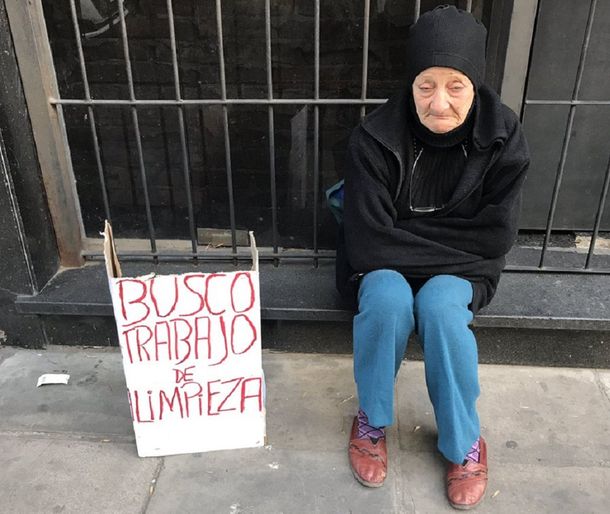 BUSCO
TRABAJO
DE
LIMPIEZA